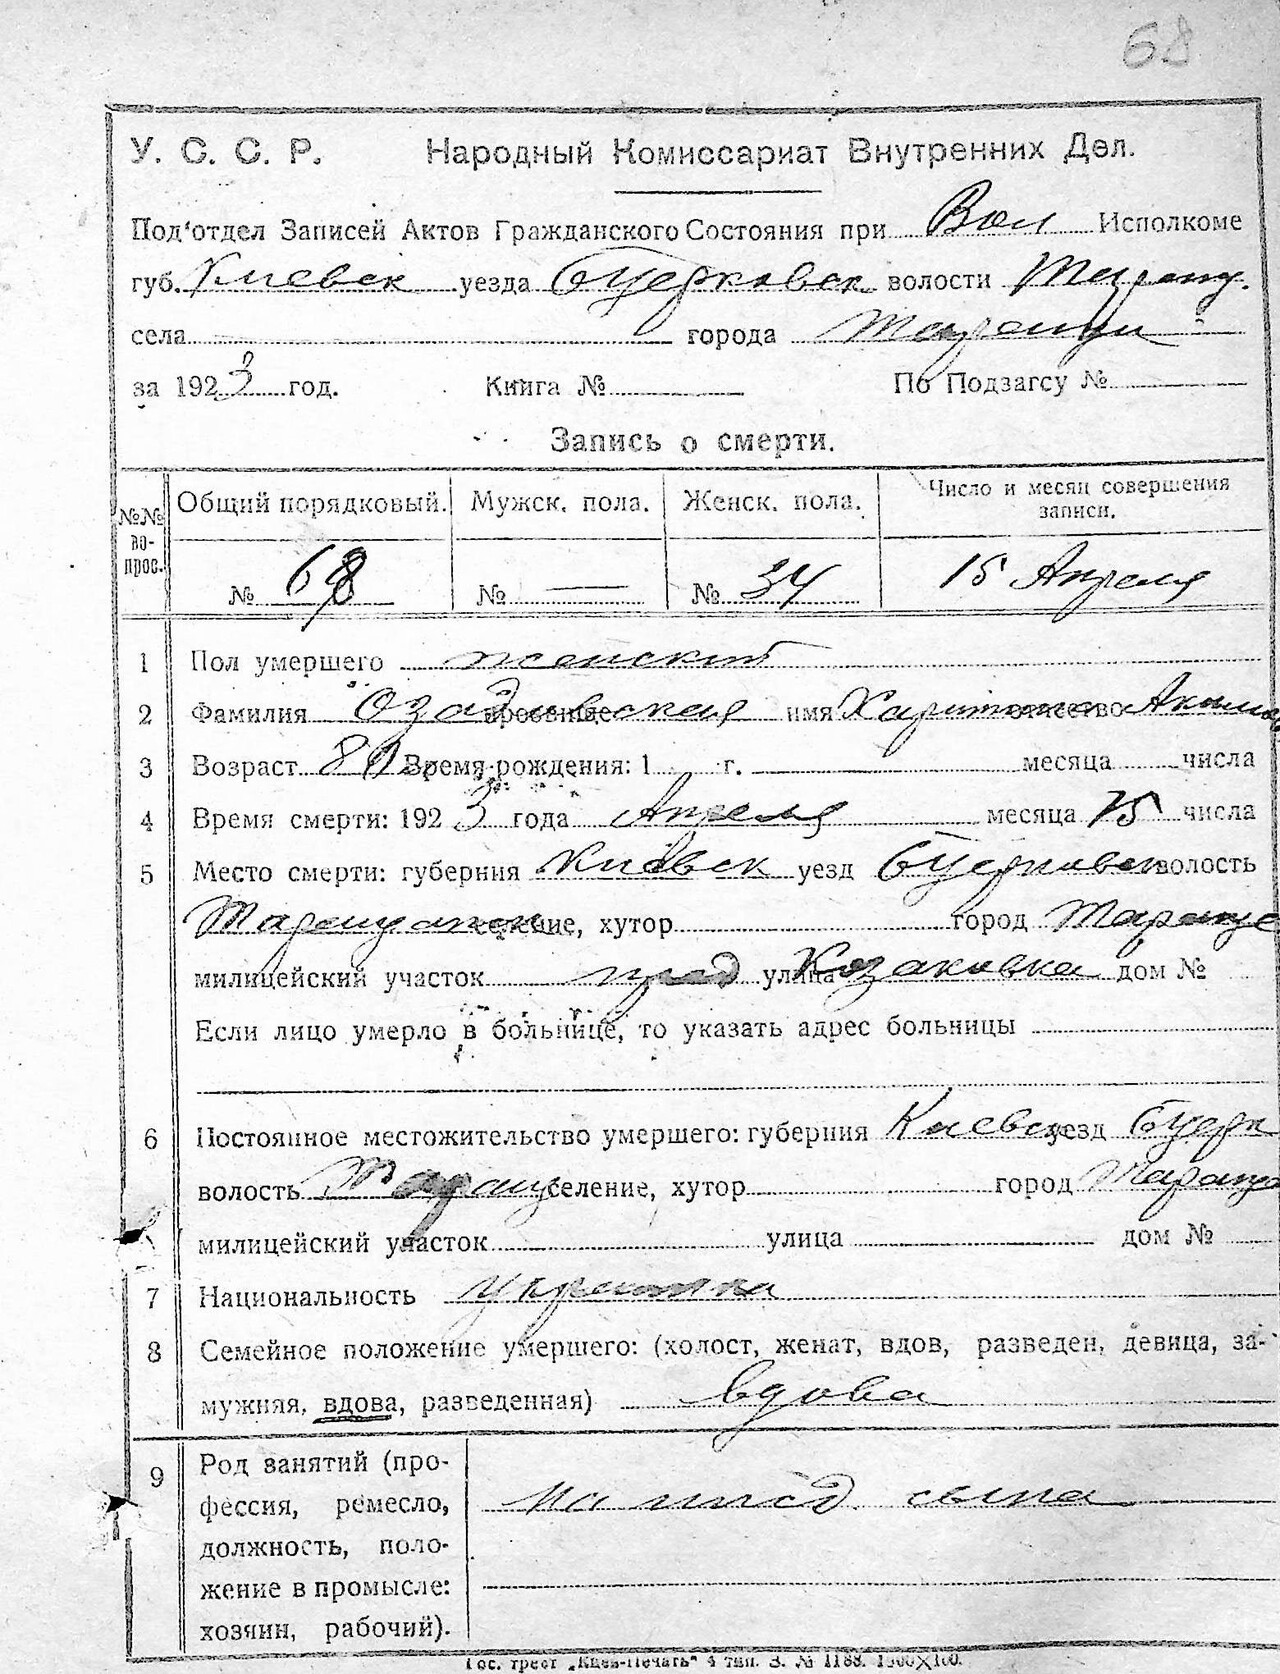 68
У. С. С. Р. Народный Комиссариат Внутренних Дел.
Под'отдел Записей Актов Гражданского Состояния при Вол Исполкоме
губ. Киевск уезда Бцерковск волости Таращ.
села города Таращи
за 1923 год. Книга № По Подзагсу №
Запись о смерти.
№№ во- прос. Общий порядковый. Мужск. пола. Женск. пола. Число и месяц совершения записи.
№ 68 № — № 34 15 Апреля
1 Пол умершего женский
2 Фамилия Озадовская прозвище имя Харитина отчество Аким
3 Возраст 80 Время рождения: 1 г. месяца числа
4 Время смерти: 1923 года Апреля месяца 15 числа
5 Место смерти: губерния Киевск уезд Бцерковск волость
Таращанск селение, хутор город Тараще
милицейский участок пред улица Козаковка дом №
Если лицо умерло в больнице, то указать адрес больницы
6 Постоянное местожительство умершего: губерния Киевск уезд Бцерк
волость Таращ селение, хутор город Тараща
милицейский участок улица дом №
7 Национальность украинка
8 Семейное положение умершего: (холост, женат, вдов, разведен, девица, за-
мужняя, вдова, разведенная) вдова
9 Род занятий (про-
фессия, ремесло, на ижд. сына
должность, поло-
жение в промысле:
хозяин, рабочий).
Гос. трест „Киев-Печать" 4 тип. З. № 1188. 1500×100.